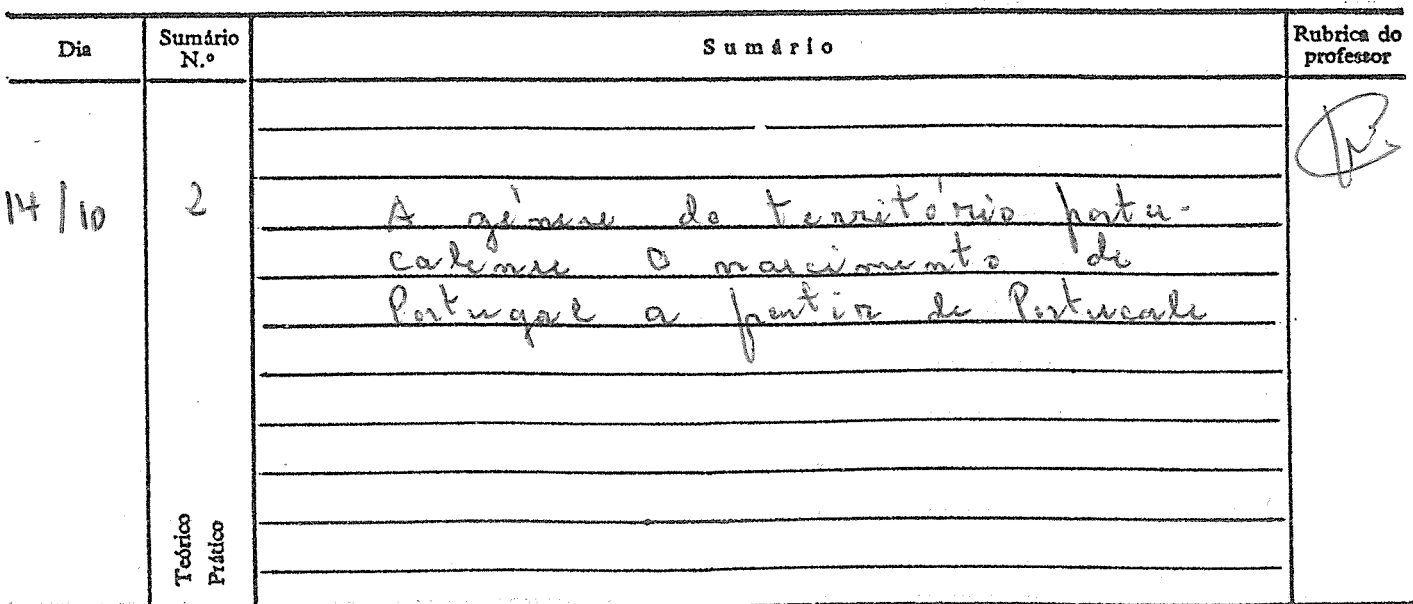 Dia
Sumário
N.º
Sumário
Rubrica do
professor
14/10
2
A génese do território portu-
calense O nascimento de
Portugal a partir de Portucale
Teórico
Prático